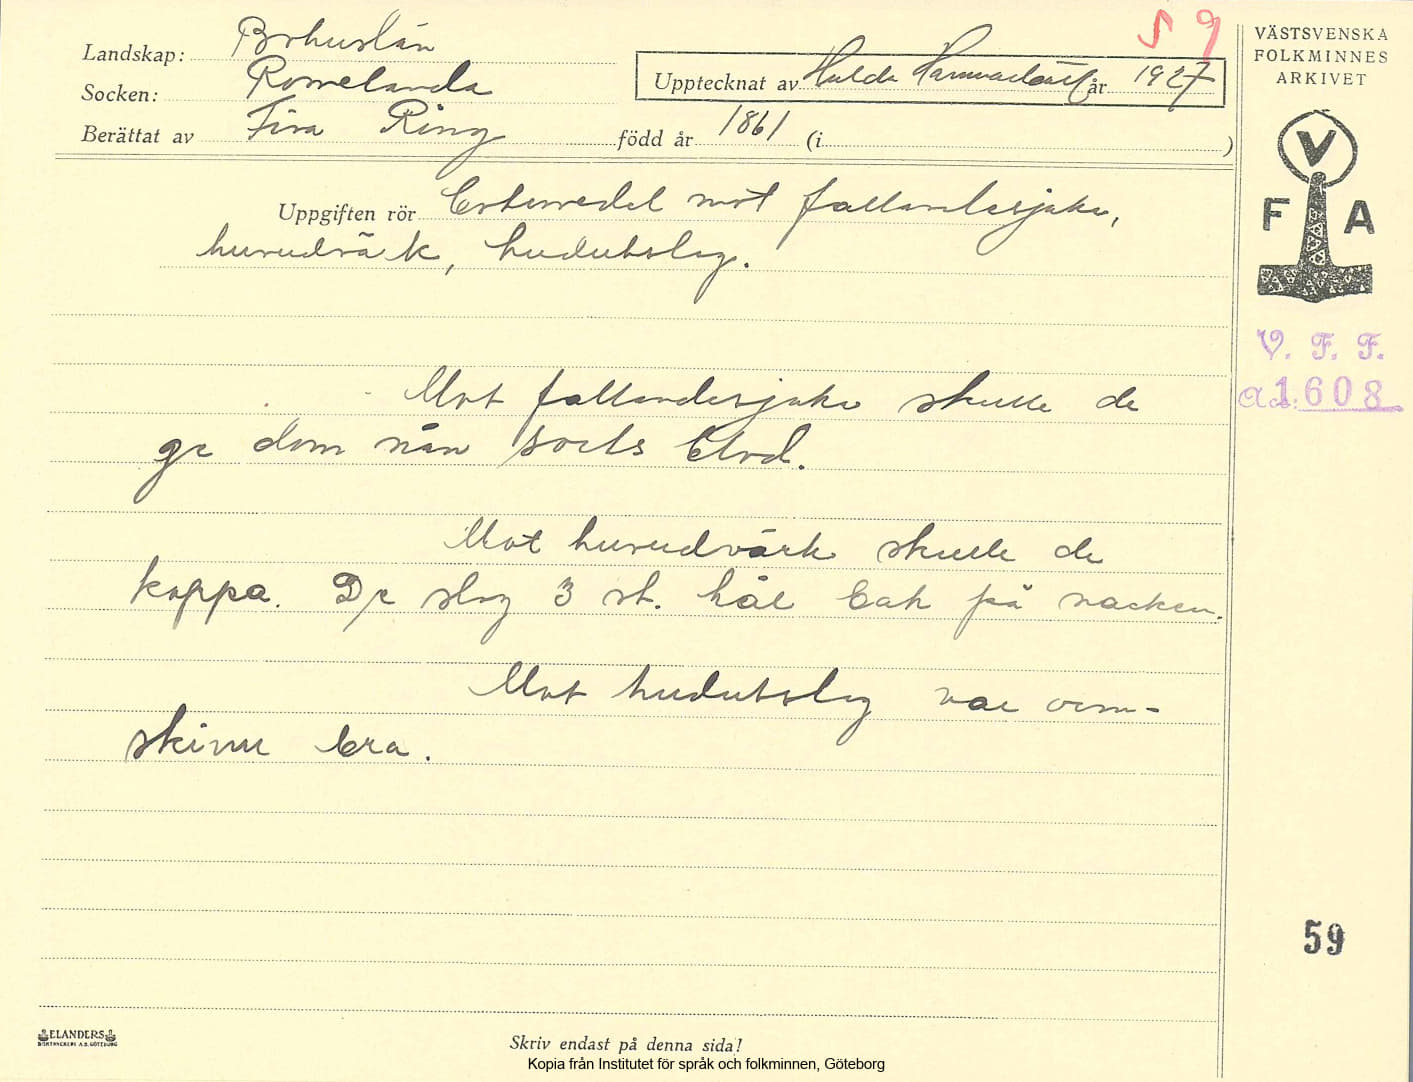 S 9
VÄSTSVENSKA
FOLKMINNES
ARKIVET
Landskap: Bohuslän
Socken: Romelanda
Upptecknat av Hulda Hammarbäck år 1927
Berättat av Fina Ring född år 1861 (i )
Uppgiften rör Botemedel mot fallandesjuka,
huvudvärk, hudutslag.
V F A
V. F. F.
Acc: 1608
Mot fallandesjuka skulle de
ge dom nån sorts blod.
Mot huvudvärk skulle de
koppa. De slog 3 st. hål bak på nacken.
Mot hudutslag var orm-
skinn bra.
59
ELANDERS
BOKTRYCKERI A.B. GÖTEBORG
Skriv endast på denna sida!
Kopia från Institutet för språk och folkminnen, Göteborg